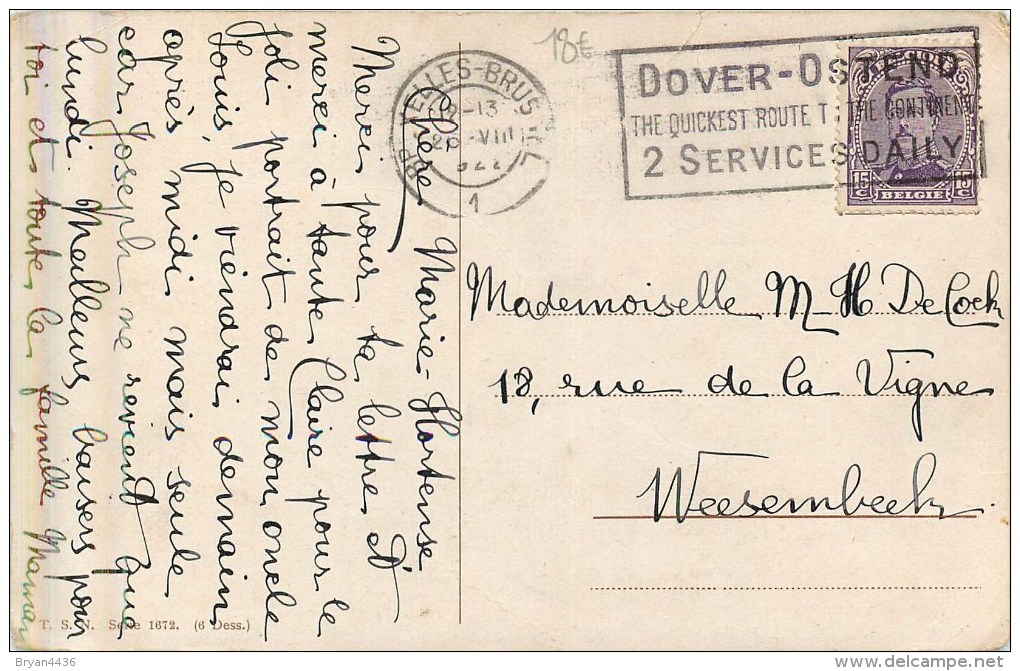 18€
BRUXELLES-BRUSSEL
8-13
VIII
1
DOVER-OSTEND
THE QUICKEST ROUTE T THE CONTINENT
2 SERVICES DAILY
15 C 15 C
BELGIE
Chère Marie-Hortense
Merci pour ta lettre et
merci à tante Claire pour le
joli portrait de mon oncle
Louis, je viendrai demain
après midi mais seule
car Joseph ne revient que
lundi. Meilleurs baisers pour
toi et toute la famille Maman
Mademoiselle M-H De Cock
18, rue de la Vigne
Weesembeek.
T. S. N. Serie 1672. (6 Dess.)
Bryan4436
delcampe.net